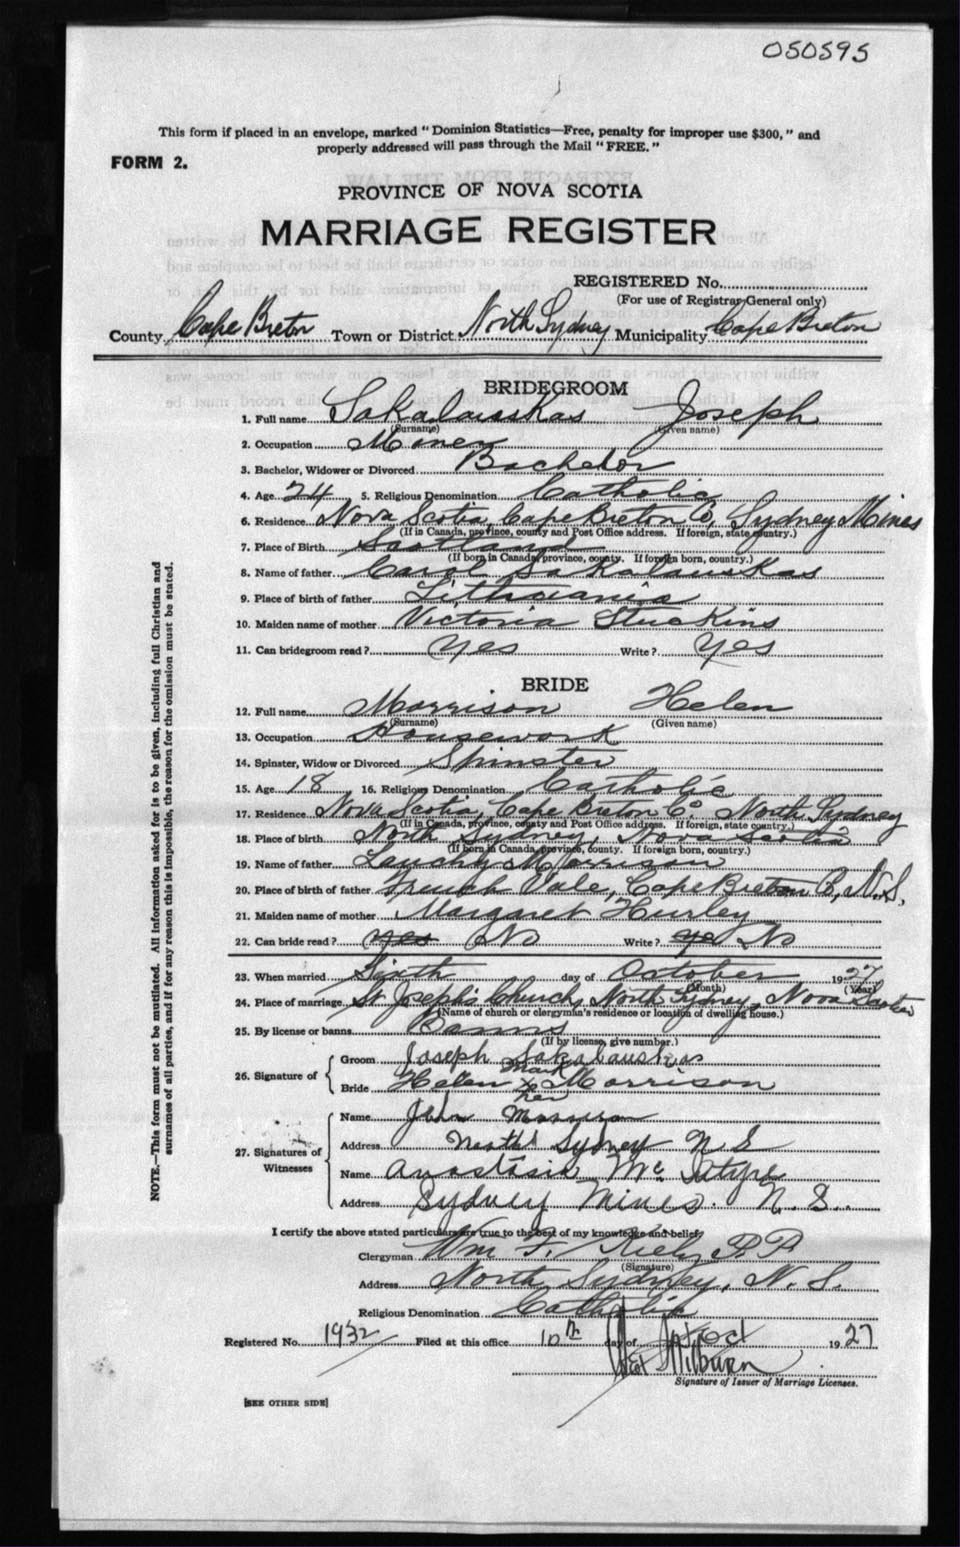 050595
This form if placed in an envelope, marked "Dominion Statistics—Free, penalty for improper use $300," and
properly addressed will pass through the Mail "FREE."
FORM 2.
PROVINCE OF NOVA SCOTIA
MARRIAGE REGISTER
REGISTERED No.
(For use of Registrar General only)
County Cape Breton Town or District North Sydney Municipality Cape Breton
BRIDEGROOM
1. Full name Sakalauskas Joseph
(Surname) (Given name)
2. Occupation Miner
3. Bachelor, Widower or Divorced Bachelor
4. Age 24 5. Religious Denomination Catholic
6. Residence Nova Scotia, Cape Breton Co, Sydney Mines
(If in Canada, province, county and Post Office address. If foreign, state country.)
7. Place of Birth Scotland
(If born in Canada, province, county. If foreign born, country.)
8. Name of father Carol Sakalauskas
9. Place of birth of father Lithuania
10. Maiden name of mother Victoria
11. Can bridegroom read? Yes Write? Yes
BRIDE
12. Full name Morrison Helen
(Surname) (Given name)
13. Occupation Housework
14. Spinster, Widow or Divorced Spinster
15. Age 18 16. Religious Denomination Catholic
17. Residence Nova Scotia, Cape Breton Co. North Sydney
(If in Canada, province, county and Post Office address. If foreign, state country.)
18. Place of birth North Sydney, Nova Scotia
(If born in Canada, province, county. If foreign born, country.)
19. Name of father Lauchy Morrison
20. Place of birth of father French Vale, Cape Breton Co, N.S.
21. Maiden name of mother Margaret Hurley
22. Can bride read? yes No Write? ye No
23. When married Sixth day of October 1927
(Month) (Year)
24. Place of marriage St Joseph's Church, North Sydney, Nova Scotia
(Name of church or clergyman's residence or location of dwelling house.)
25. By license or banns Banns
(If by license, give number.)
26. Signature of
Groom Joseph Sakalauskas
mark
Bride Helen x Morrison
her
27. Signatures of Witnesses
Name John Morrison
Address North Sydney N S
Name Anastasia Mc Intyre
Address Sydney Mines. N. S.
I certify the above stated particulars are true to the best of my knowledge and belief,
Clergyman Wm F. Kiely P.P.
(Signature)
Address North Sydney, N. S.
Religious Denomination Catholic
Registered No. 1932 Filed at this office 10th day of Oct 1927
Milburn
Signature of Issuer of Marriage Licenses.
[SEE OTHER SIDE]
NOTE.—This form must not be mutilated. All information asked for is to be given, including full Christian and
surnames of all parties, and if for any reason this is impossible, the reason for the omission must be stated.